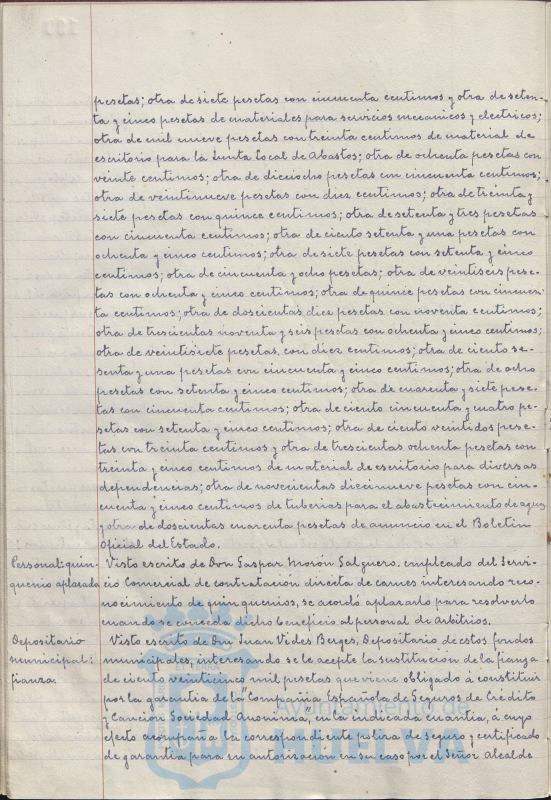 pesetas; otra de siete pesetas con cincuenta centimos y otra de seten-
ta y cinco pesetas de materiales para servicios mecanicos y electricos;
otra de mil nueve pesetas con treinta centimos de material de
escritorio para la Junta local de Abastos; otra de ochenta pesetas con
veinte centimos; otra de dieciocho pesetas con cincuenta centimos;
otra de veintinueve pesetas con diez centimos; otra de treinta y
siete pesetas con quince centimos; otra de setenta y tres pesetas
con cincuenta centimos; otra de ciento setenta y una pesetas con
ochenta y cinco centimos; otra de siete pesetas con setenta y cinco
centimos; otra de cincuenta y ocho pesetas; otra de veintiseis pese-
tas con ochenta y cinco centimos; otra de quince pesetas con cincuen-
ta centimos; otra de doscientas diez pesetas con noventa centimos;
otra de trescientas noventa y seis pesetas con ochenta y cinco centimos;
otra de veintisiete pesetas, con diez centimos; otra de ciento se-
senta y una pesetas con cincuenta y cinco centimos; otra de ocho
pesetas con setenta y cinco centimos; otra de cuarenta y siete pese-
tas con cincuenta centimos; otra de ciento cincuenta y cuatro pe-
setas con setenta y cinco centimos; otra de ciento veintidos pese-
tas con treinta centimos y otra de trescientas ochenta pesetas con
treinta y cinco centimos de material de escritorio para diversas
dependencias; otra de novecientas diecinueve pesetas con cin-
cuenta y cinco centimos de tuberias para el abastecimiento de aguas
y otra de doscientas cuarenta pesetas de anuncio en el Boletin
Oficial del Estado.
Personal: quin-
quenio aplazado
Visto escrito de Don Gaspar Morón Salguero, empleado del Servi-
cio Comercial de contratación directa de carnes interesando reco-
nocimiento de quinquenios, se acordó aplazarlo para resolverlo
cuando se conceda dicho beneficio al personal de Arbitrios.
Depositario
municipal:
fianza
Visto escrito de Don Juan Vides Berges, Depositario de estos fondos
municipales, interesando se le acepte la sustitución de la fianza
de ciento veinticinco mil pesetas que viene obligado á constituir
por la garantia de la "Compañia Española de Seguros de Crédito
y Caución Sociedad Anonima", en la indicada cuantia, á cuyo
efecto acompaña la correspondiente poliza de seguro y certificado
de garantia para su autorización en su caso por el Señor Alcalde
Ayuntamiento de
HUELVA